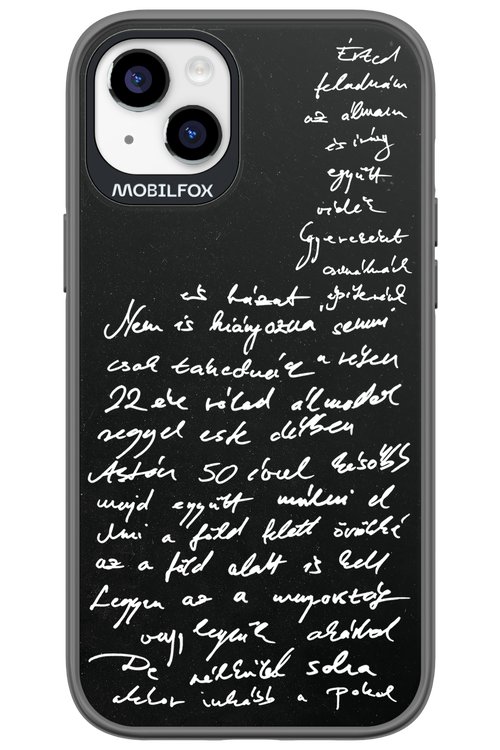 MOBILFOX
Érted
feladnám
az álmaim
és így
együtt
vidék
Gyerekeket
csinálnánk
és házat építenénk
Nem is hiányozna semmi
csak takednác a réten
22 éve rólad álmodok
reggel este délben
Aztán 50 évvel később
majd együtt múlni el
Ami a föld felett örökké
az a föld alatt is kell
Legyen az a mennyország
vagy legyünk akárhol
De nélküled soha
akkor inkább a pokol